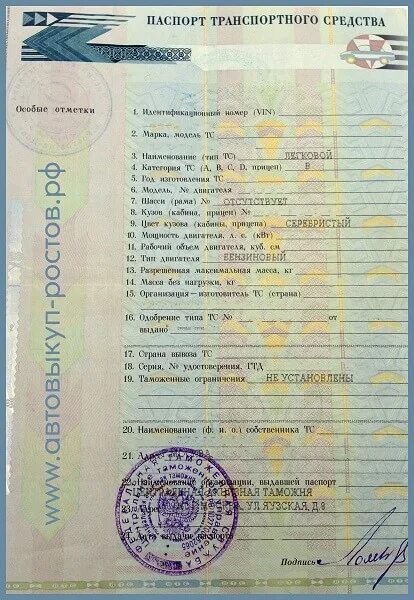 ПАСПОРТ ТРАНСПОРТНОГО СРЕДСТВА
Особые отметки
www.автовыкуп-ростов.рф
1. Идентификационный номер (VIN)
2. Марка, модель ТС
3. Наименование (тип ТС) ЛЕГКОВОЙ
4. Категория ТС (A, B, C, D, прицеп) B
5. Год изготовления ТС
6. Модель, № двигателя
7. Шасси (рама) № ОТСУТСТВУЕТ
8. Кузов (кабина, прицеп) №
9. Цвет кузова (кабины, прицепа) СЕРЕБРИСТЫЙ
10. Мощность двигателя, л. с. (кВт)
11. Рабочий объем двигателя, куб. см
12. Тип двигателя БЕНЗИНОВЫЙ
13. Разрешенная максимальная масса, кг
14. Масса без нагрузки, кг
15. Организация—изготовитель ТС (страна)
16. Одобрение типа ТС № от
выдано
17. Страна вывоза ТС
18. Серия, № удостоверения, ГТД
19. Таможенные ограничения НЕ УСТАНОВЛЕНЫ
20. Наименование (ф. и. о.) собственника ТС
21.
22. Наименование организации, выдавшей паспорт
ТАМОЖНЯ
УЛ ЯУЗСКАЯ Д.8
выдачи паспорта
Подпись